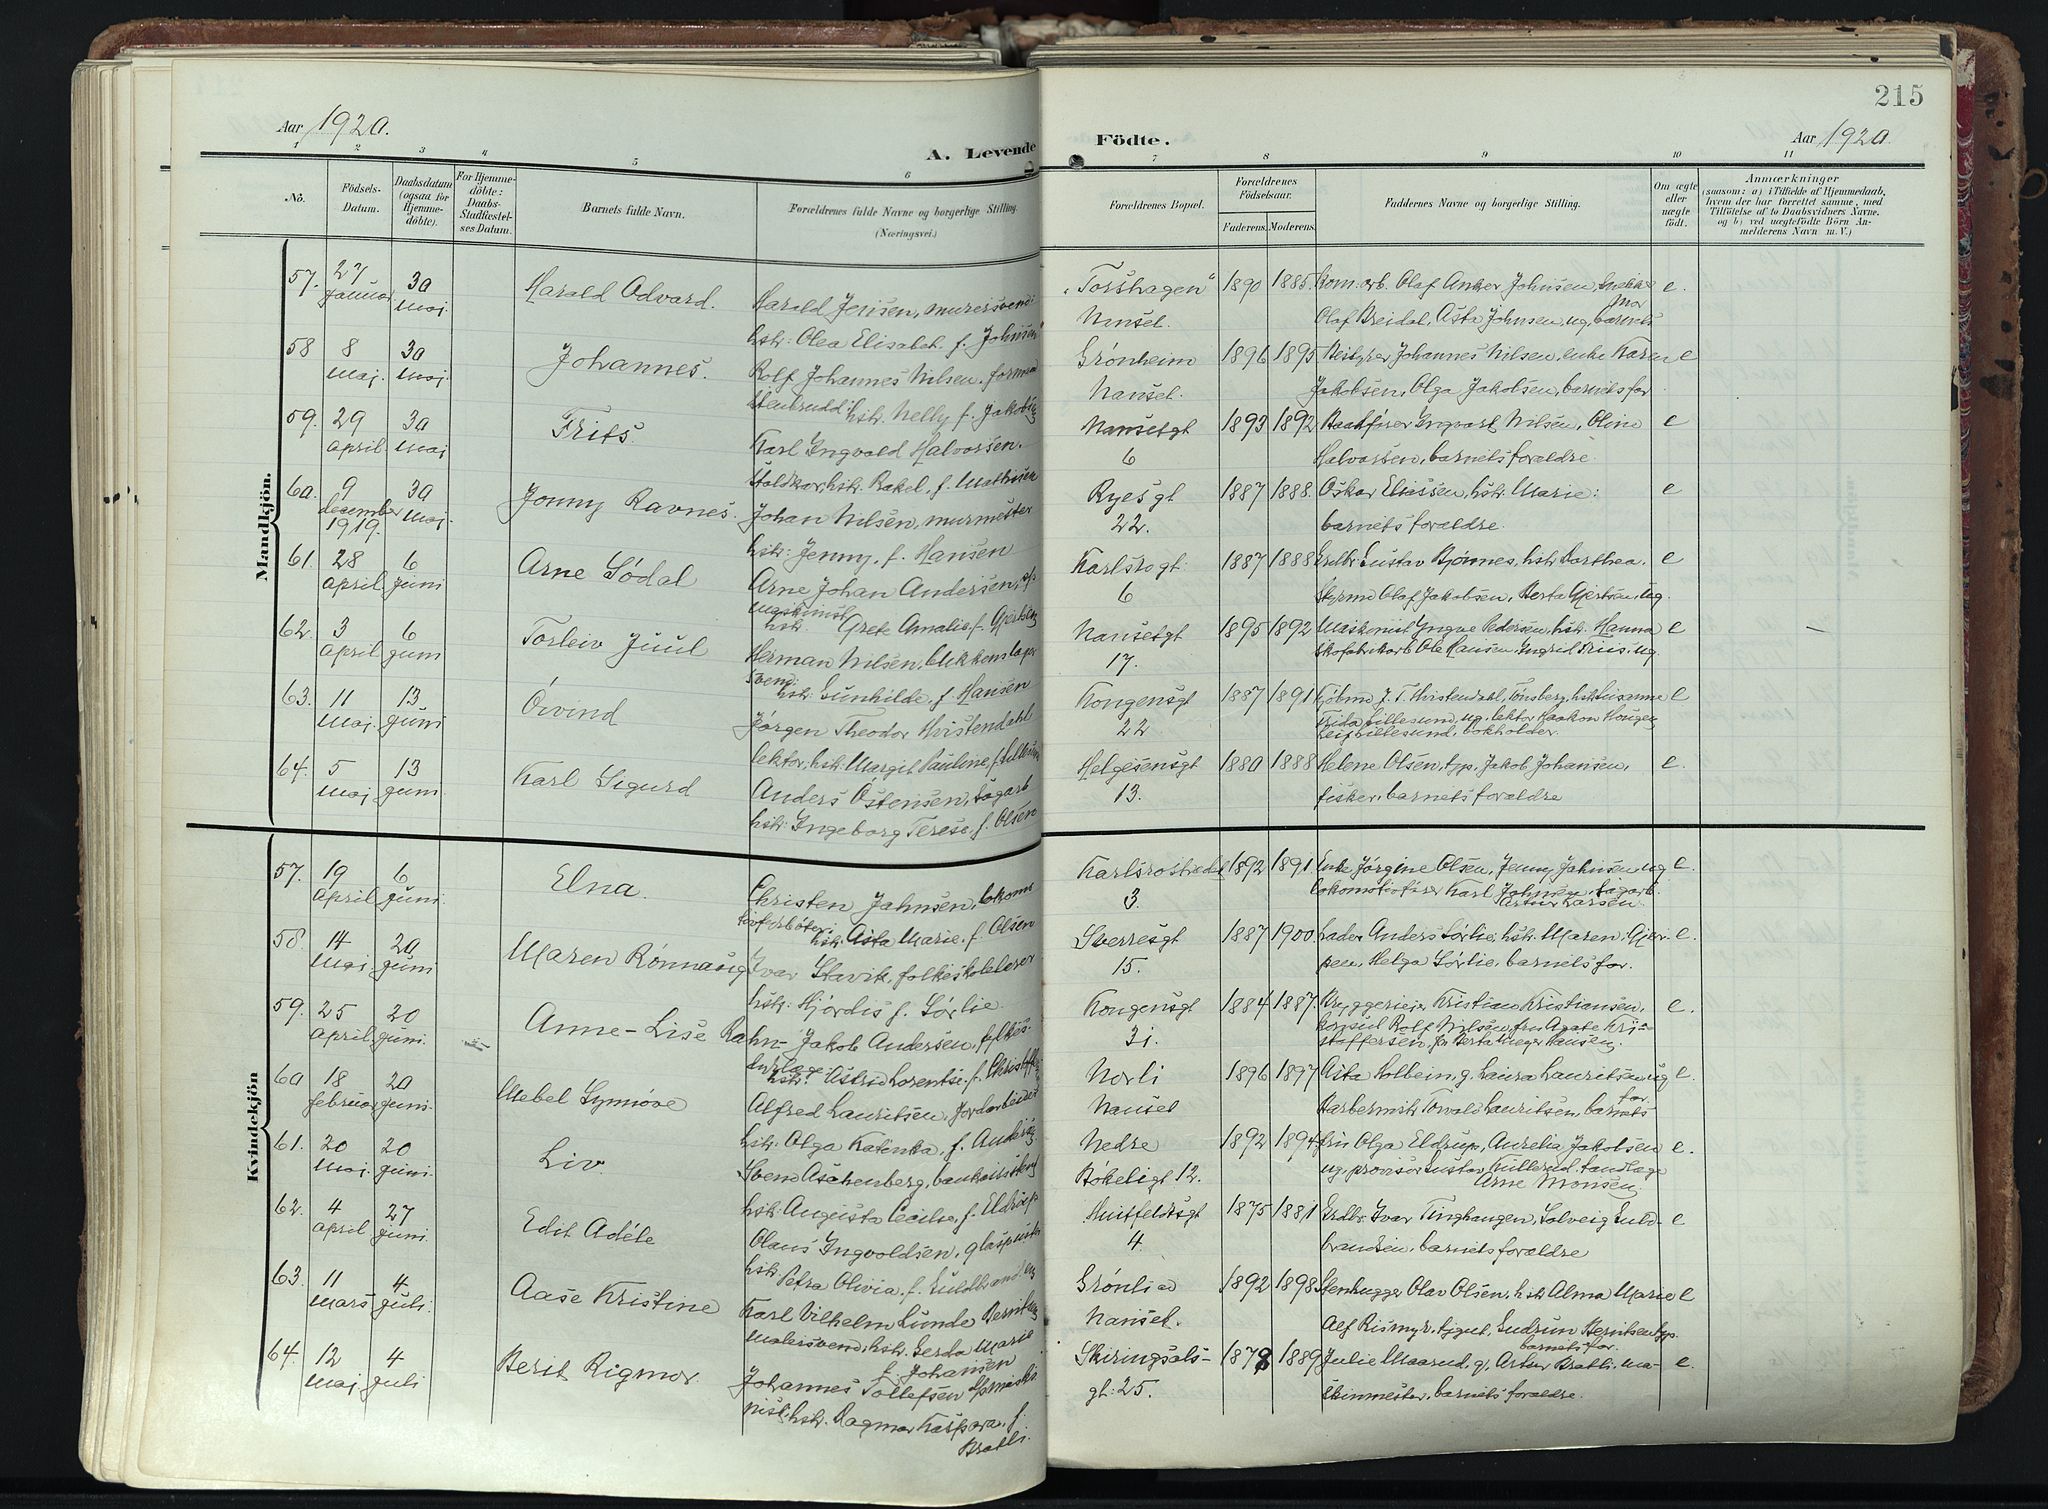 215
Aar 1920.
A. Levende Födte.
Aar 1920.
1 2 3 4 5 6 7 8 9 10 11
No.
Födsels-Datum.
Daabsdatum (ogsaa for Hjemmedöbte).
For Hjemmedöbte: Daabs-Stadfæstelses Datum.
Barnets fulde Navn.
Forældrenes fulde Navne og borgerlige Stilling. (Næringsvei.)
Forældrenes Bopæl.
Forældrenes Födselsaar.
Faderens. Moderens.
Faddernes Navne og borgerlige Stilling.
Om ægte eller uægte födt.
Anmærkninger
(saasom: a) i Tilfælde af Hjemmedaab, hvem der har forrettet samme, med Tilföielse af to Daabsvidners Navne, og b) ved uægtefödte Börn Anmelderens Navn m. V.)
Mandkjön.
57. 27 januar 30 mai. Harald Odvard. Harald Jensen, murersvend: hstr: Olea Elisabet. f. Johnsen "Torshagen" Nanset. 1890 1885. Kom.arb. Olaf Anker Johnsen, Olaf Breidal, Asta Johnsen, ug, barnets mor e.
58 8 mai. 30 mai. Johannes. Rolf Johannes Nilsen, formand stenbrudd: hstr. Nelly f. Jakobsen Grønheim Nanset. 1896 1895 Bestyrer Johannes Nilsen, enke Karen Jakobsen, Olga Jakobsen, barnets for e
59. 29 april. 30 mai Frits. Karl Ingvald Halvorsen. hstr. Rakel, f. Mathisen Nansetgt 6 1893 1892 Baatfører Ingvart Nilsen, Oline Halvorsen, barnets forældre. e
60. 9 december 1919. 30 mai. Jonny Ravnes. Johan Nilsen, murmester hstr: Jenny, f. Hansen Ryesgt 22. 1887 1888. Oskar Eliassen, hstr. Marie: barnets forældre. e
61. 28 april 6 juni Arne Södal Arne Johan Andersen, maskinist hstr. Grete Amalie f. Gjertsen Karlsrogt. 6 1887 1888 Grdbr. Gustav Bjønnes, hstr. Dorthea. Styrmd Olaf Jakobsen, Berta Gjertsen, ug. e
62. 3 april 6 juni Torleiv Juul Herman Nilsen, blikkenslager svend: hstr. Gunhilde, f. Hansen Nansetgt 17. 1895 1892 Maskinist Ingve Pedersen, hstr. Hanna skofabrikarb. Ole Hansen, Ingrid Friis. ug. e
63. 11 mai. 13 juni Öivind Jørgen Theodor Hvistendahl lektor, hstr: Margit Pauline, f. Lillesund Kongensgt 22 1887 1891 Kjøbmd J. T. Hvistendahl, Tønsberg, hstr Susanne Frida Lillesund, ug. lektor Haakon Hougen Leif Lillesund, bokholder. e
64. 5 mai 13 juni. Karl Sigurd Anders Östensen, Sagarb hstr: Ingeborg Terese f. Olsen Helgesensgt 13. 1880 1888 Helene Olsen, tyv., Jakob Johansen, fisker, barnets forældre e.
Kvindekjön
57. 19 april 6 juni. Elna. Christen Jahnsen, lokomotivfyrbøter, hstr. Asta Marie. f. Olsen Karlsrostredet 3. 1892 1891 Enke Jørgine Olsen, Jenny Jahnsen ug lokomotivfører Karl Johnsen, Sagarb. Artur Larsen. e.
58. 14 mai 20 juni Maren Rønnaug Ivar Slavik, folkeskolelærer hstr: Hjördis f. Sörlie. Sverresgt 15. 1887 1900. Lader Anders Sörlie, hstr. Maren, Gjerpen, Helga Sörlie, barnets for. e.
59. 25 april 20 juni. Anne-Lise Rahn- Jakob Andersen, fylkesdyrlæge hstr. Astrid Lorentse. f. Christoffersen Kongensgt 31. 1884 1887. Bryggerieier Kristian Kristiansen, konsul Rolf Nilsen, fru Agate Kristoffersen, fr Berta Unger Hansen. e.
60 18 februar 20 juni. Mebel Synnöve Alfred Lauritsen, Jordarbeider hstr: Olga Katinka, f. Andersen Norli Nanset 1896 1897 Asta Holbein, g. Laura Lauritsen ug Barbermstr Torvald Lauritsen, barnets for. e.
61. 20 mai. 20 juni. Liv. Svend Aschenberg, bankassistent hstr: Augusta Cecilie, f. Eldrup Nedre Bökeligt 12. 1892 1894 Fru Olga Eldrup, Aurelia Jakobsen ug, provisor Gustav Kullerud, tandlæge Arne Monsen. e.
62. 4 april 27 juni. Edit Adéle Olaus Ingvoldsen, glaspuster hstr Petra Olivia, f. Guldbrandsen Huitfeldtsgt 4. 1875 1881 Grdbr. Ivar Tinghaugen, Solveig Guldbrandsen, barnets forældre e
63. 11 mars 4 juli. Aase Kristine Karl Vilhelm Lunde Berntsen malersvend, hstr. Gerda Marie f. Johansen Grønli Nanset. 1892 1898 Stenhugger Olav Olsen, hstr Alma Marie Alf Rismyr, tjgut, Gudrun Berntsen typ. barnets for. e
64. 12 mai 4 juli Berit Rigmor. Johannes Tollefsen maskinist, hstr. Dagmar Kaspara. f. Bratli. Skiringsalsgt: 25. 1878 1889 Julie Maarud, g, Artur Bratli, maskinmester, barnets forældre. e.